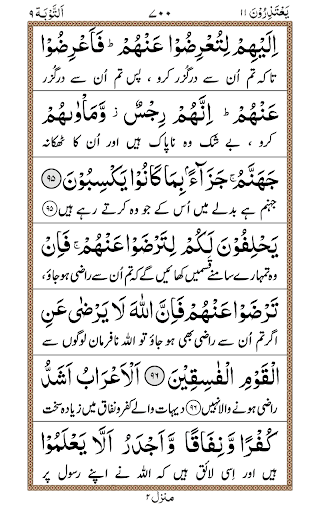 يَعْتَذِرُوْنَ ١١ ٧٠٠ اَلتَّوْبَة ٩
اِلَيْهِمْ لِتُعْرِضُوْا عَنْهُمْ ؕ فَاَعْرِضُوْا
تاکہ تم اُن سے درگزر کرو ، پس تم اُن سے درگزر
عَنْهُمْ ؕ اِنَّهُمْ رِجْسٌ ؗ وَّمَاْوٰىهُمْ
کرو ، بے شک وہ ناپاک ہیں اور اُن کا ٹھکانہ
جَهَنَّمُ ۚ جَزَآءًۢ بِمَا كَانُوْا يَكْسِبُوْنَ ﴿۹۵﴾
جہنم ہے بدلے میں اُس کے جو وہ کرتے رہے ہیں ﴿۹۵﴾
يَحْلِفُوْنَ لَكُمْ لِتَرْضَوْا عَنْهُمْ ۚ فَاِنْ
وہ تمہارے سامنے قسمیں کھائیں گے کہ تم اُن سے راضی ہو جاؤ ،
تَرْضَوْا عَنْهُمْ فَاِنَّ اللّٰهَ لَا يَرْضٰى عَنِ
اگر تم اُن سے راضی بھی ہو جاؤ تو اللہ نافرمان لوگوں سے
الْقَوْمِ الْفٰسِقِيْنَ ﴿۹۶﴾ اَلْاَعْرَابُ اَشَدُّ
راضی ہونے والا نہیں ﴿۹۶﴾ دیہات والے کفر و نفاق میں زیادہ سخت
كُفْرًا وَّنِفَاقًا وَّاَجْدَرُ اَلَّا يَعْلَمُوْا
ہیں اور اِسی لائق ہیں کہ اللہ نے اپنے رسول پر
منزل ۲